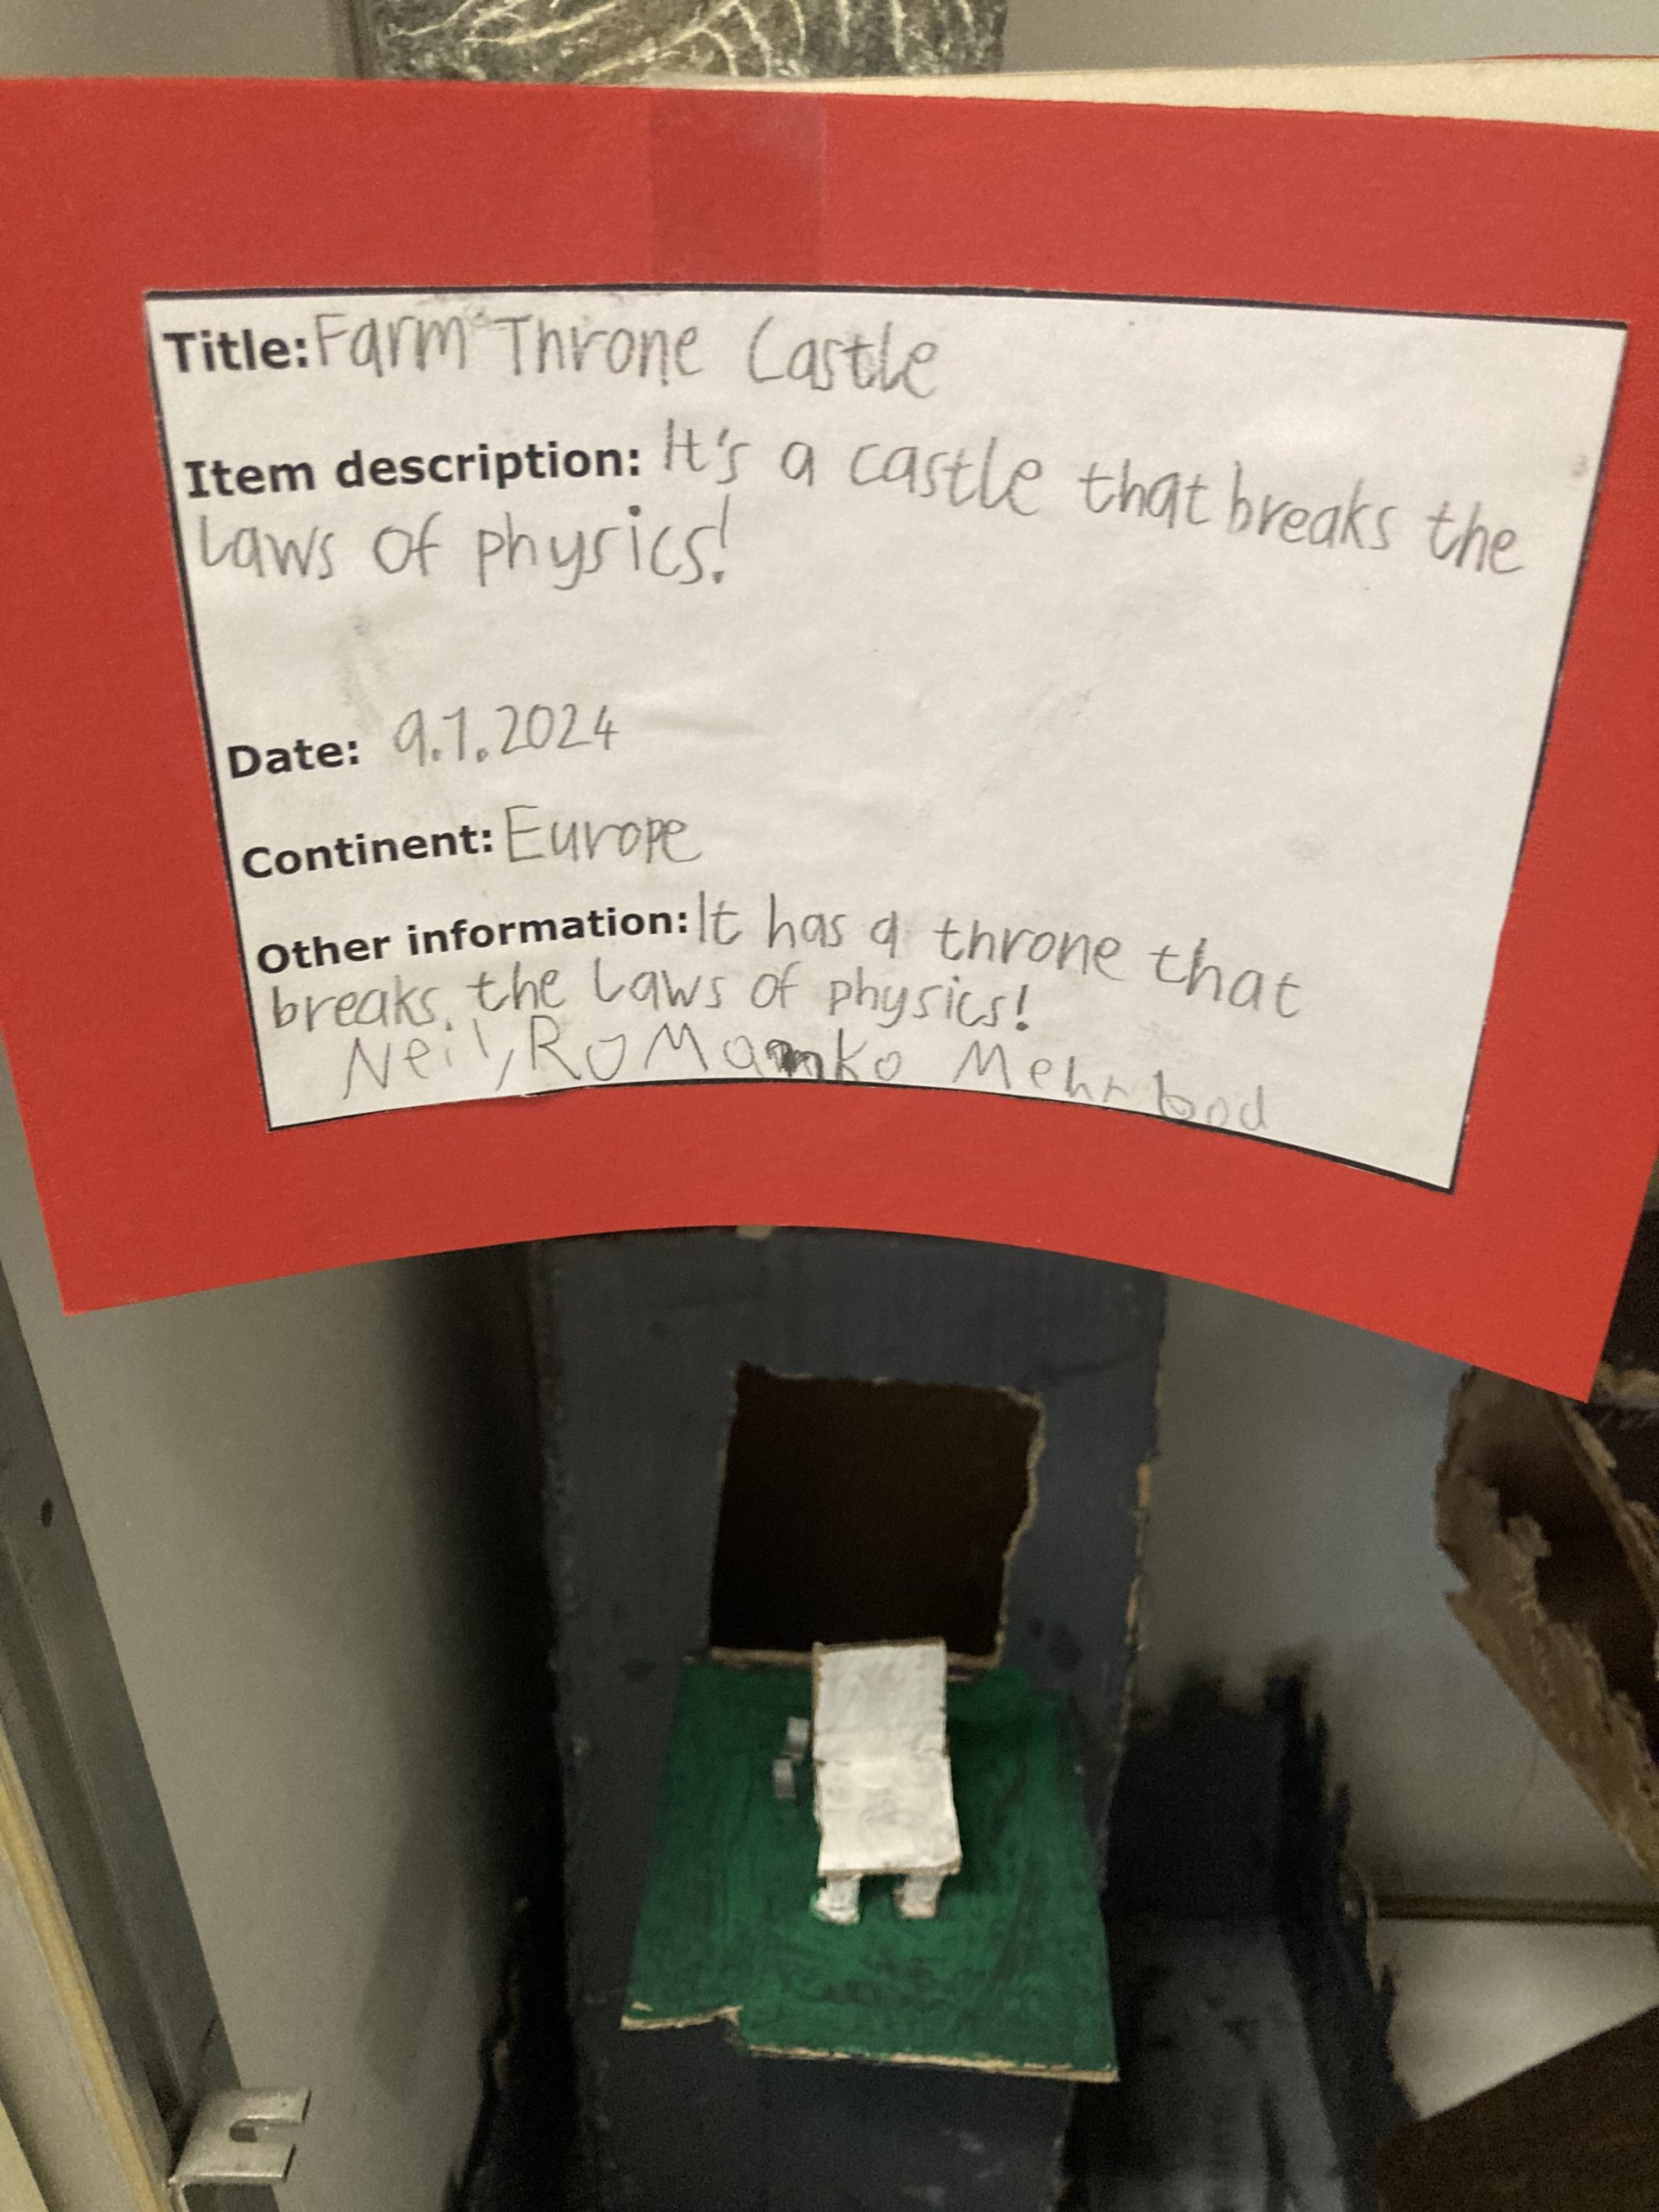 Title: Farm Throne Castle
Item description: It's a castle that breaks the
laws of physics!
Date: 9.1.2024
Continent: Europe
Other information: It has a throne that
breaks. the laws of physics!
Neil,